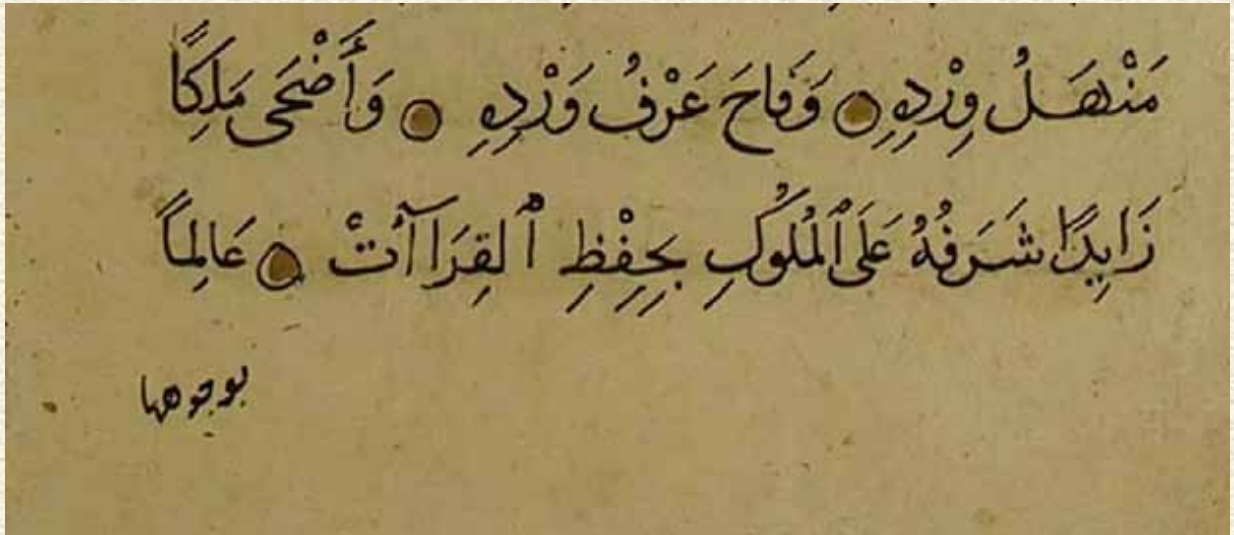 مَنْهَلُ وِرْدِهِ ۝ وَفَاحَ عَرْفُ وَرْدِهِ ۝ وَأَضْحَى مَلِكًا
زَايِدًا شَرَفُهُ عَلَى ٱلْمُلُوكِ بِحِفْظِ ٱلقِرَاآتْ ۝ عَالِمًا
بوجوهها